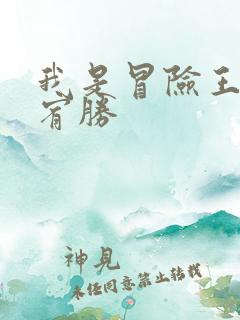 我是冒險王
宥勝
神見
未经同意禁止转载